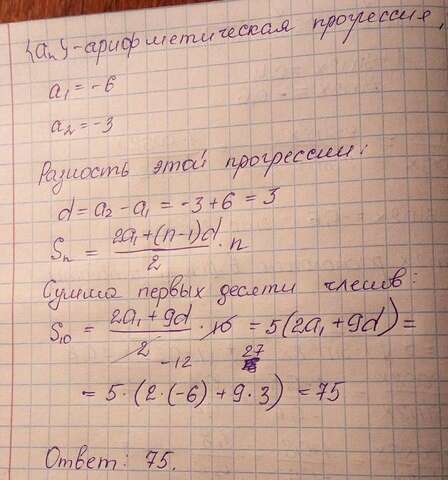 {aₙ}-арифметическая прогрессия,
a₁ = -6
a₂ = -3
Разность этой прогрессии:
d = a₂ - a₁ = -3 + 6 = 3
Sₙ = (2a₁ + (n-1)d)/2 · n
Сумма первых десяти членов:
S₁₀ = (2a₁ + 9d)/2 · 10 = 5(2a₁ + 9d) =
-12 27
= 5·(2·(-6) + 9·3) = 75
Ответ: 75.